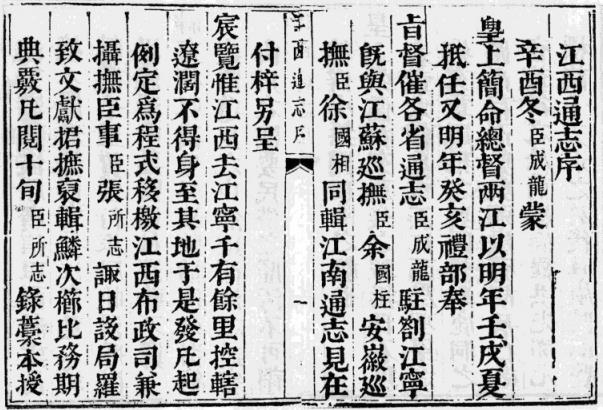 江西通志序
辛酉冬臣成龍蒙
皇上簡命總督兩江以明年壬戌夏
抵任又明年癸亥禮部奉
旨督催各省通志臣成龍駐劄江寧
旣與江蘇巡撫臣余國柱安徽巡
撫臣徐國相同輯江南通志見在
江西通志序
一
付梓另呈
宸覽惟江西去江寧千有餘里控轄
遼濶不得身至其地于是發凡起
例定爲程式移檄江西布政司兼
攝撫臣事臣張所志諏日設局羅
致文獻捃摭裒輯鱗次櫛比務期
典覈凡閱十旬臣所志錄藁本授